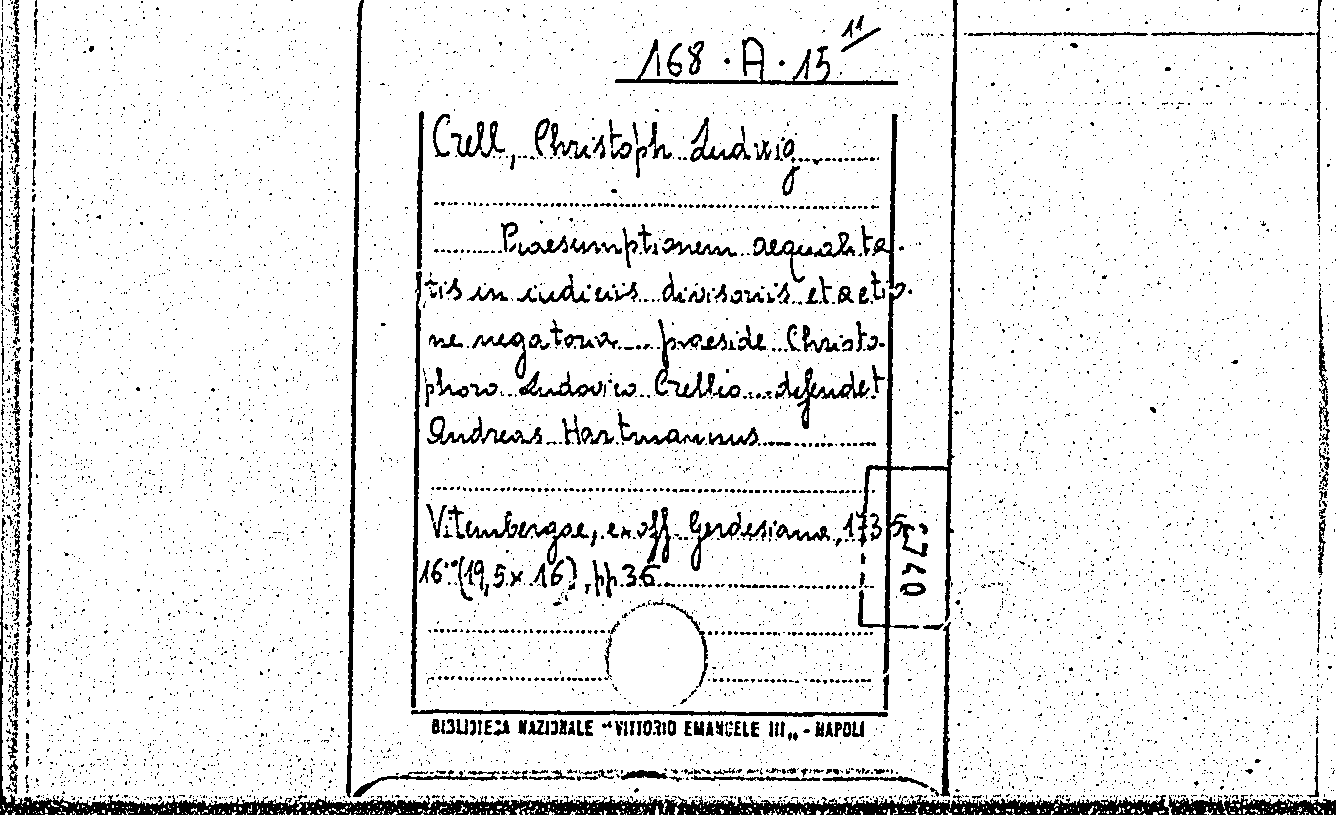 168 · A · 15 11/
Crell, Christoph Ludwig
Praesumptionem aequalita-
tis in iudiciis divisoriis et actio-
ne negatoria ... praeside Christo-
phoro Ludovico Crellio ... defendet
Andreas Hartmannus
Vitembergae, ex off. Gerdesiana, 1735
16° (19,5 x 16), pp 36
BIBLIOTECA NAZIONALE "VITTORIO EMANUELE III" - NAPOLI